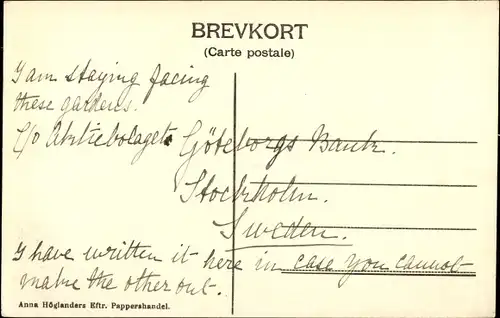 BREVKORT
(Carte postale)
I am staying facing
these gardens.
C/o Aktiebolaget Göteborgs Bank.
Stockholm.
Sweden.
I have written it here in case you cannot
make the other out.
Anna Höglanders Eftr. Pappershandel.